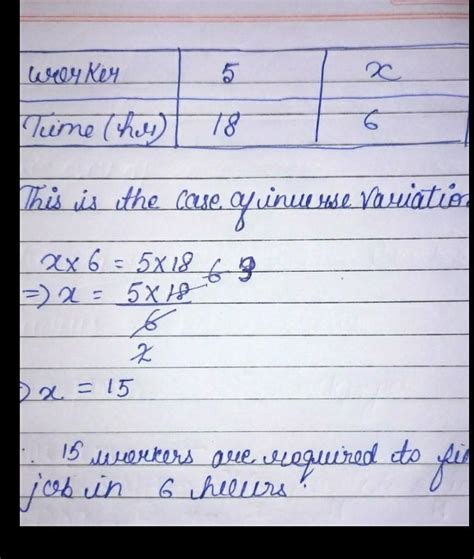 worker 5 x
Time (hrs) 18 6
This is the case of inverse Variation
x × 6 = 5 × 18
⇒ x = 5 × 18 6 3
6
2
x = 15
∴ 15 workers are required to
job in 6 hours.